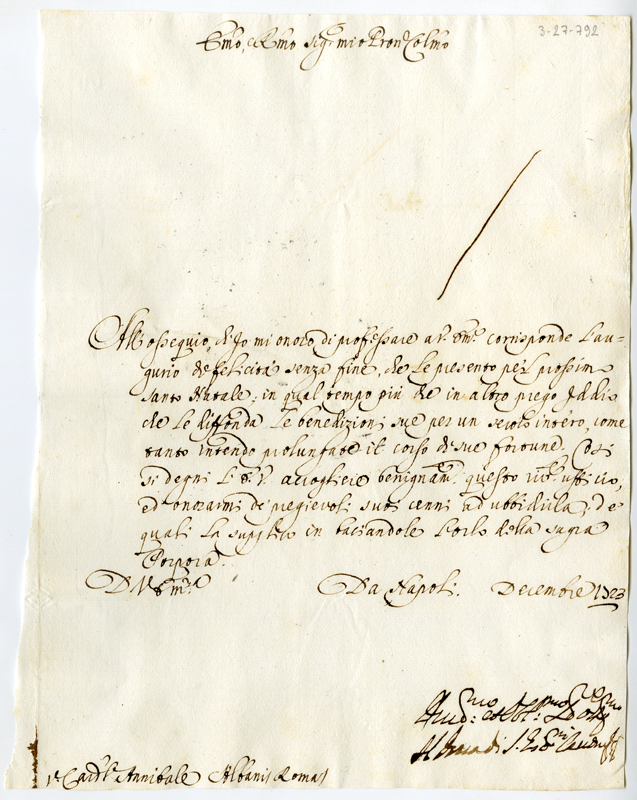 3-27-792
Emo, e Rmo Sigr mio Pron Colmo
All'ossequio, ch'Io mi onoro di professare a V. Emza corrisponde l'au-
gurio di felicità senza fine, che Le presento pel prossimo
Santo Natale; in qual tempo più che in altro priego Iddio
che Le diffonda le benedizioni sue per un secolo intero, come
tanto intendo prolunfare il corso di sue fortune. Così
si degni l'E. V. accogliere benignamte questo rive ufficio,
ed onorarmi de' pregievoli suoi cenni ad ubbidirla; de'
quali La supplico in baciandole l'orlo della sagra
Porpora.
D. V. Emza Da Napoli. Decembre 1723
Sr Cardle Annibale Albani Roma